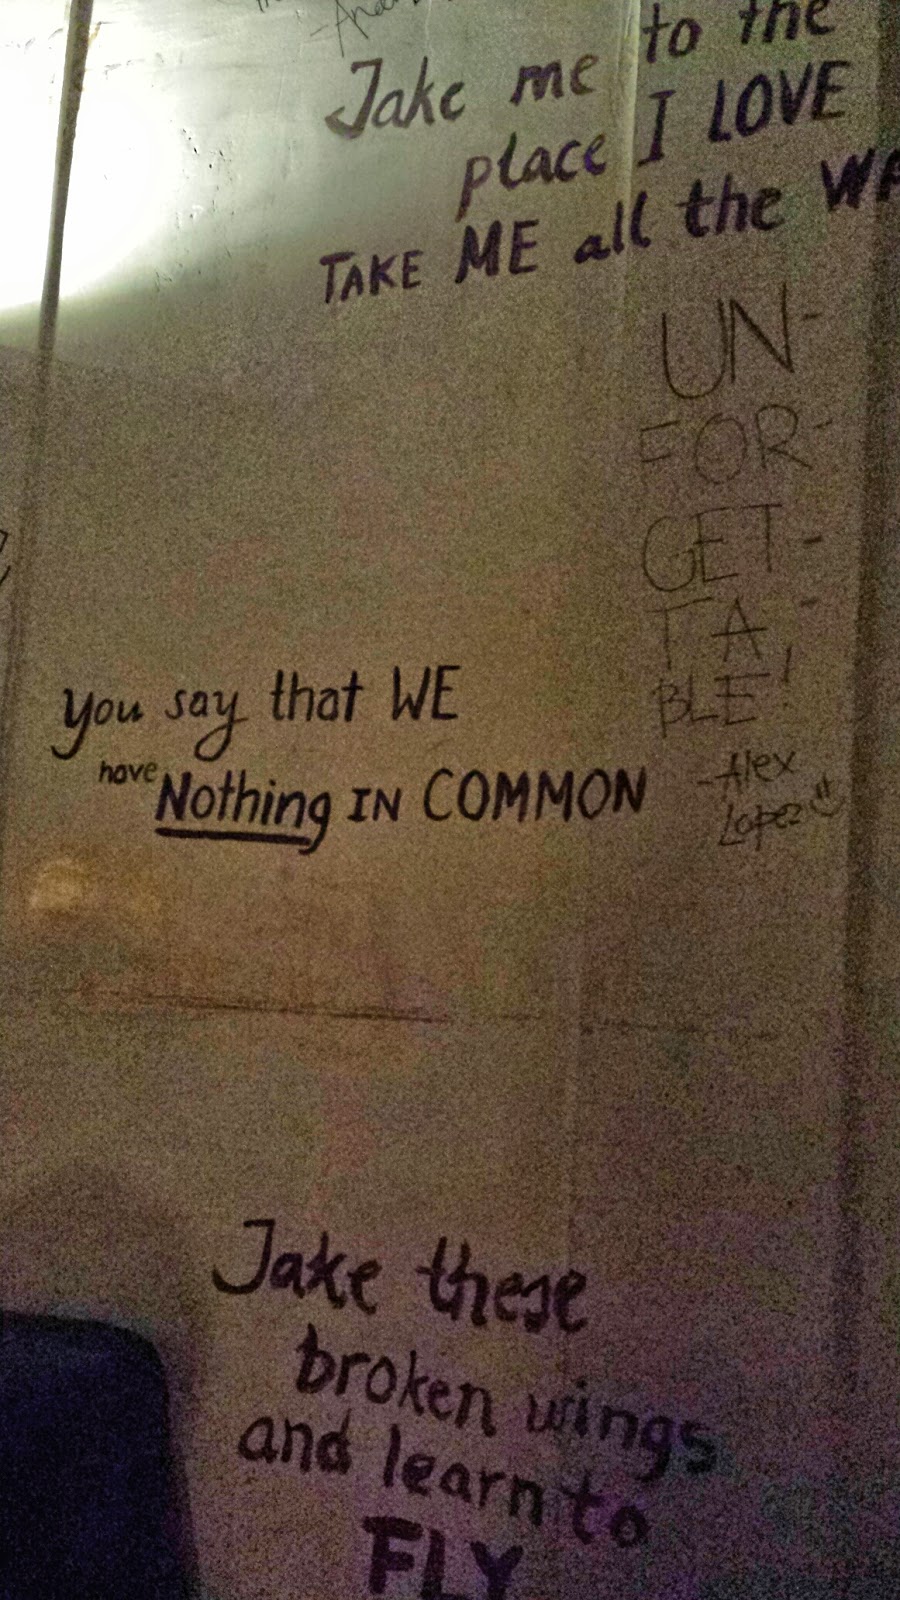 Take me to the
place I LOVE
TAKE ME all the
UN-
FOR-
GET-
TA-
BLE!
-Alex
Lopez
you say that WE
have
Nothing IN COMMON
Take these
broken wings
and learn to
FLY